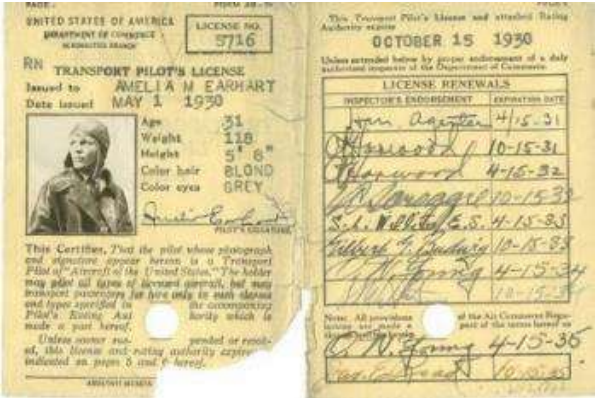 UNITED STATES OF AMERICA
DEPARTMENT OF COMMERCE
AERONAUTICS BRANCH
LICENSE NO.
5716
RN
TRANSPORT PILOT'S LICENSE
Issued to AMELIA M EARHART
Date issued MAY 1 1930
Age 31
Weight 118
Height 5' 8"
Color hair BLOND
Color eyes GREY
PILOT'S SIGNATURE
This Certifies, That the pilot whose photograph
and signature appear hereon is a Transport
Pilot of "Aircraft of the United States." The holder
may pilot all types of licensed aircraft, but may
transport passengers for hire only in such classes
and types specified in the accompanying
Pilot's Rating Aut hority which is
made a part hereof.
Unless sooner sus pended or revok-
ed, this license and rating authority expires
indicated on pages 5 and 6 hereof.
This Transport Pilot's License and attached Rating
Authority expire
OCTOBER 15 1930
Unless extended below by proper endorsement of a duly
authorized inspector of the Department of Commerce.
LICENSE RENEWALS
INSPECTOR'S ENDORSEMENT EXPIRATION DATE
4/15-31
Horwood 10-15-31
Horwood 4-15-32
10-15-32
S.L. E.S. 4-15-33
Gilbert G. Budwig 10-15-33
Young 4-15-34
10-15-34
Note: All provisions of the Air Commerce Regu-
are made a part of the terms hereof as
N. Young 4-15-35
10-15-35